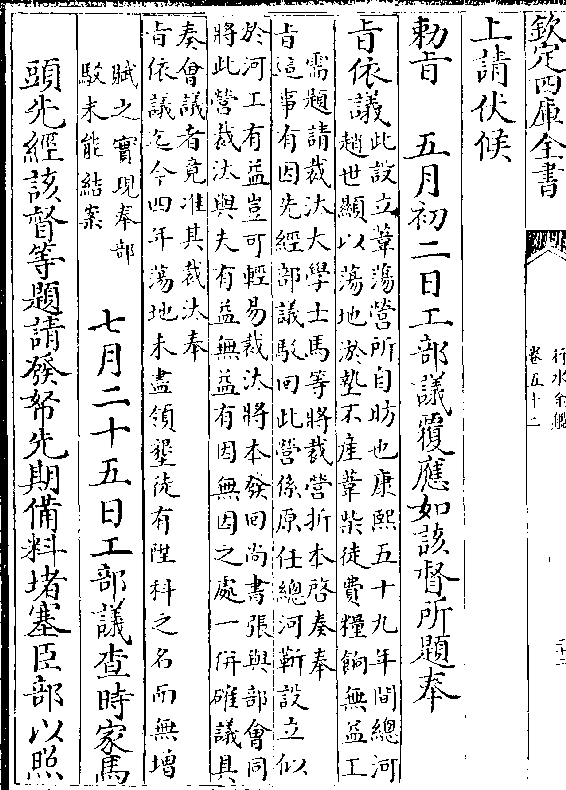 欽定四庫全書
行水金鑑
卷五十二
上請伏候
勅旨　五月初二日工部議覆應如該督所題奉
旨依議此設立葦蕩營所自昉也康熙五十九年間總河
趙世顯以蕩地淤墊不産葦柴徒費糧餉無益工
需題請裁汰大學士馬等將裁營折本啓奏奉
旨這事有因先經部議駁回此營係原任總河靳設立似
於河工有益豈可輕易裁汰將本發回尚書張與部會同
將此營裁汰與夫有益無益有因無因之處一併確議具
奏會議者竟准其裁汰奉
旨依議迄今四年蕩地未盡領墾徒有陞科之名而無增
賦之實現奉部
駁未能結案
七月二十五日工部議查時家馬
頭先經該督等題請發帑先期備料堵塞臣部以照